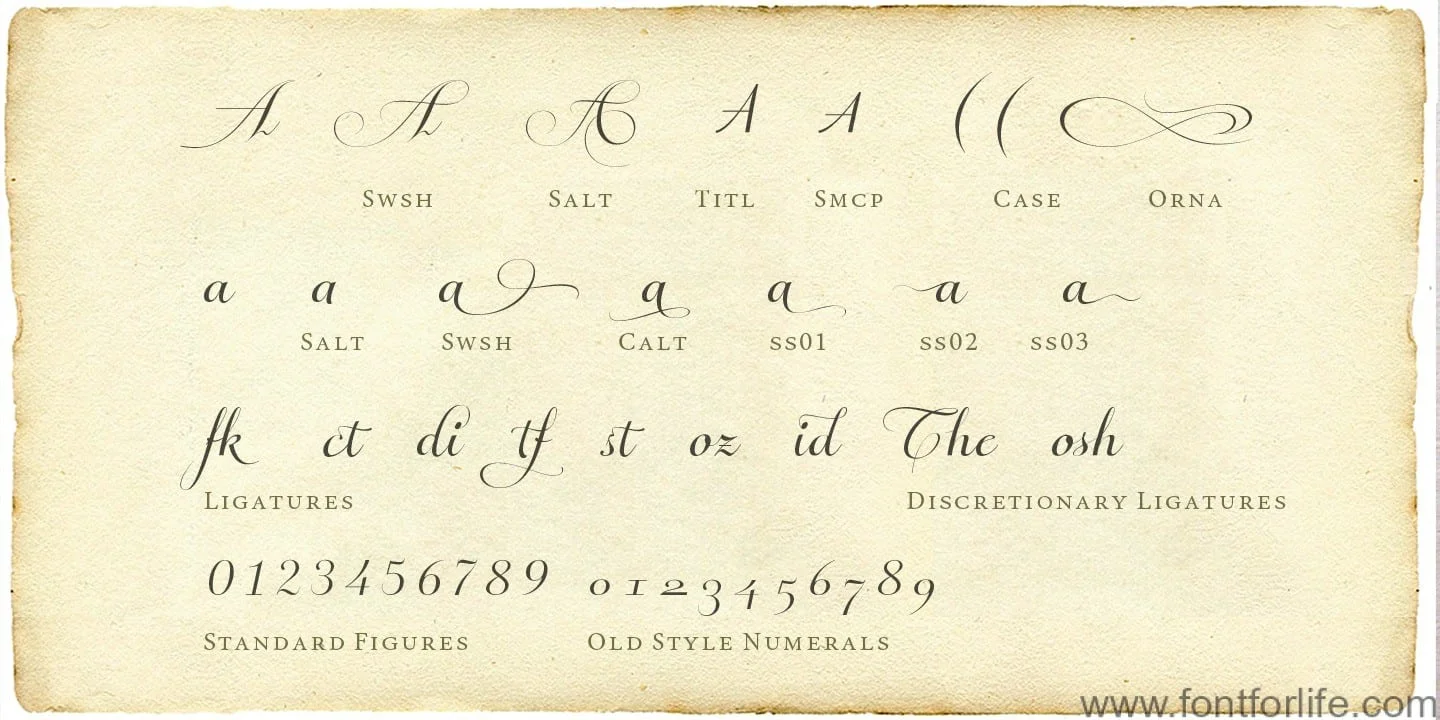 A A A A A ( (
Swsh Salt Titl Smcp Case Orna
a a a a a a a
Salt Swsh Calt ss01 ss02 ss03
fk ct di tf st oz id The osh
Ligatures Discretionary Ligatures
0123456789 0123456789
Standard Figures Old Style Numerals
www.fontforlife.com